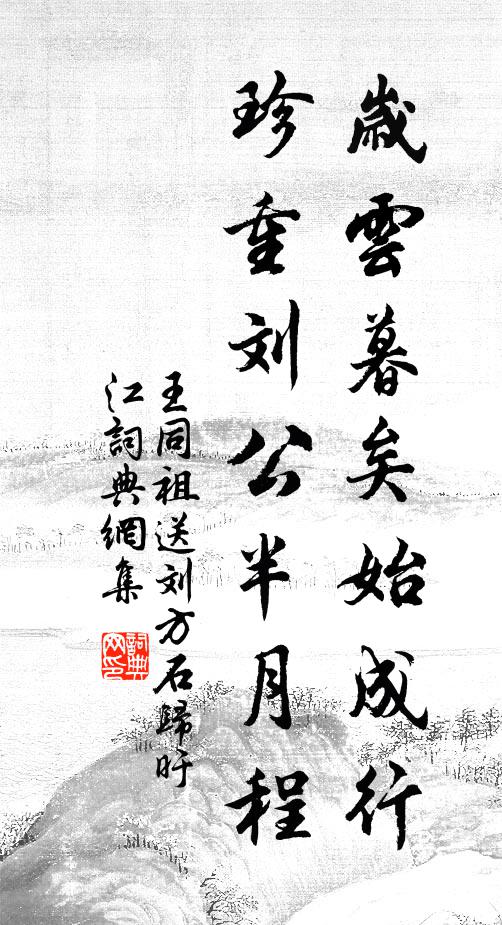 歲雲暮矣始成行
珍重刘公半月程
王同祖送刘方石歸旴
江詞典網集
詞典
网印